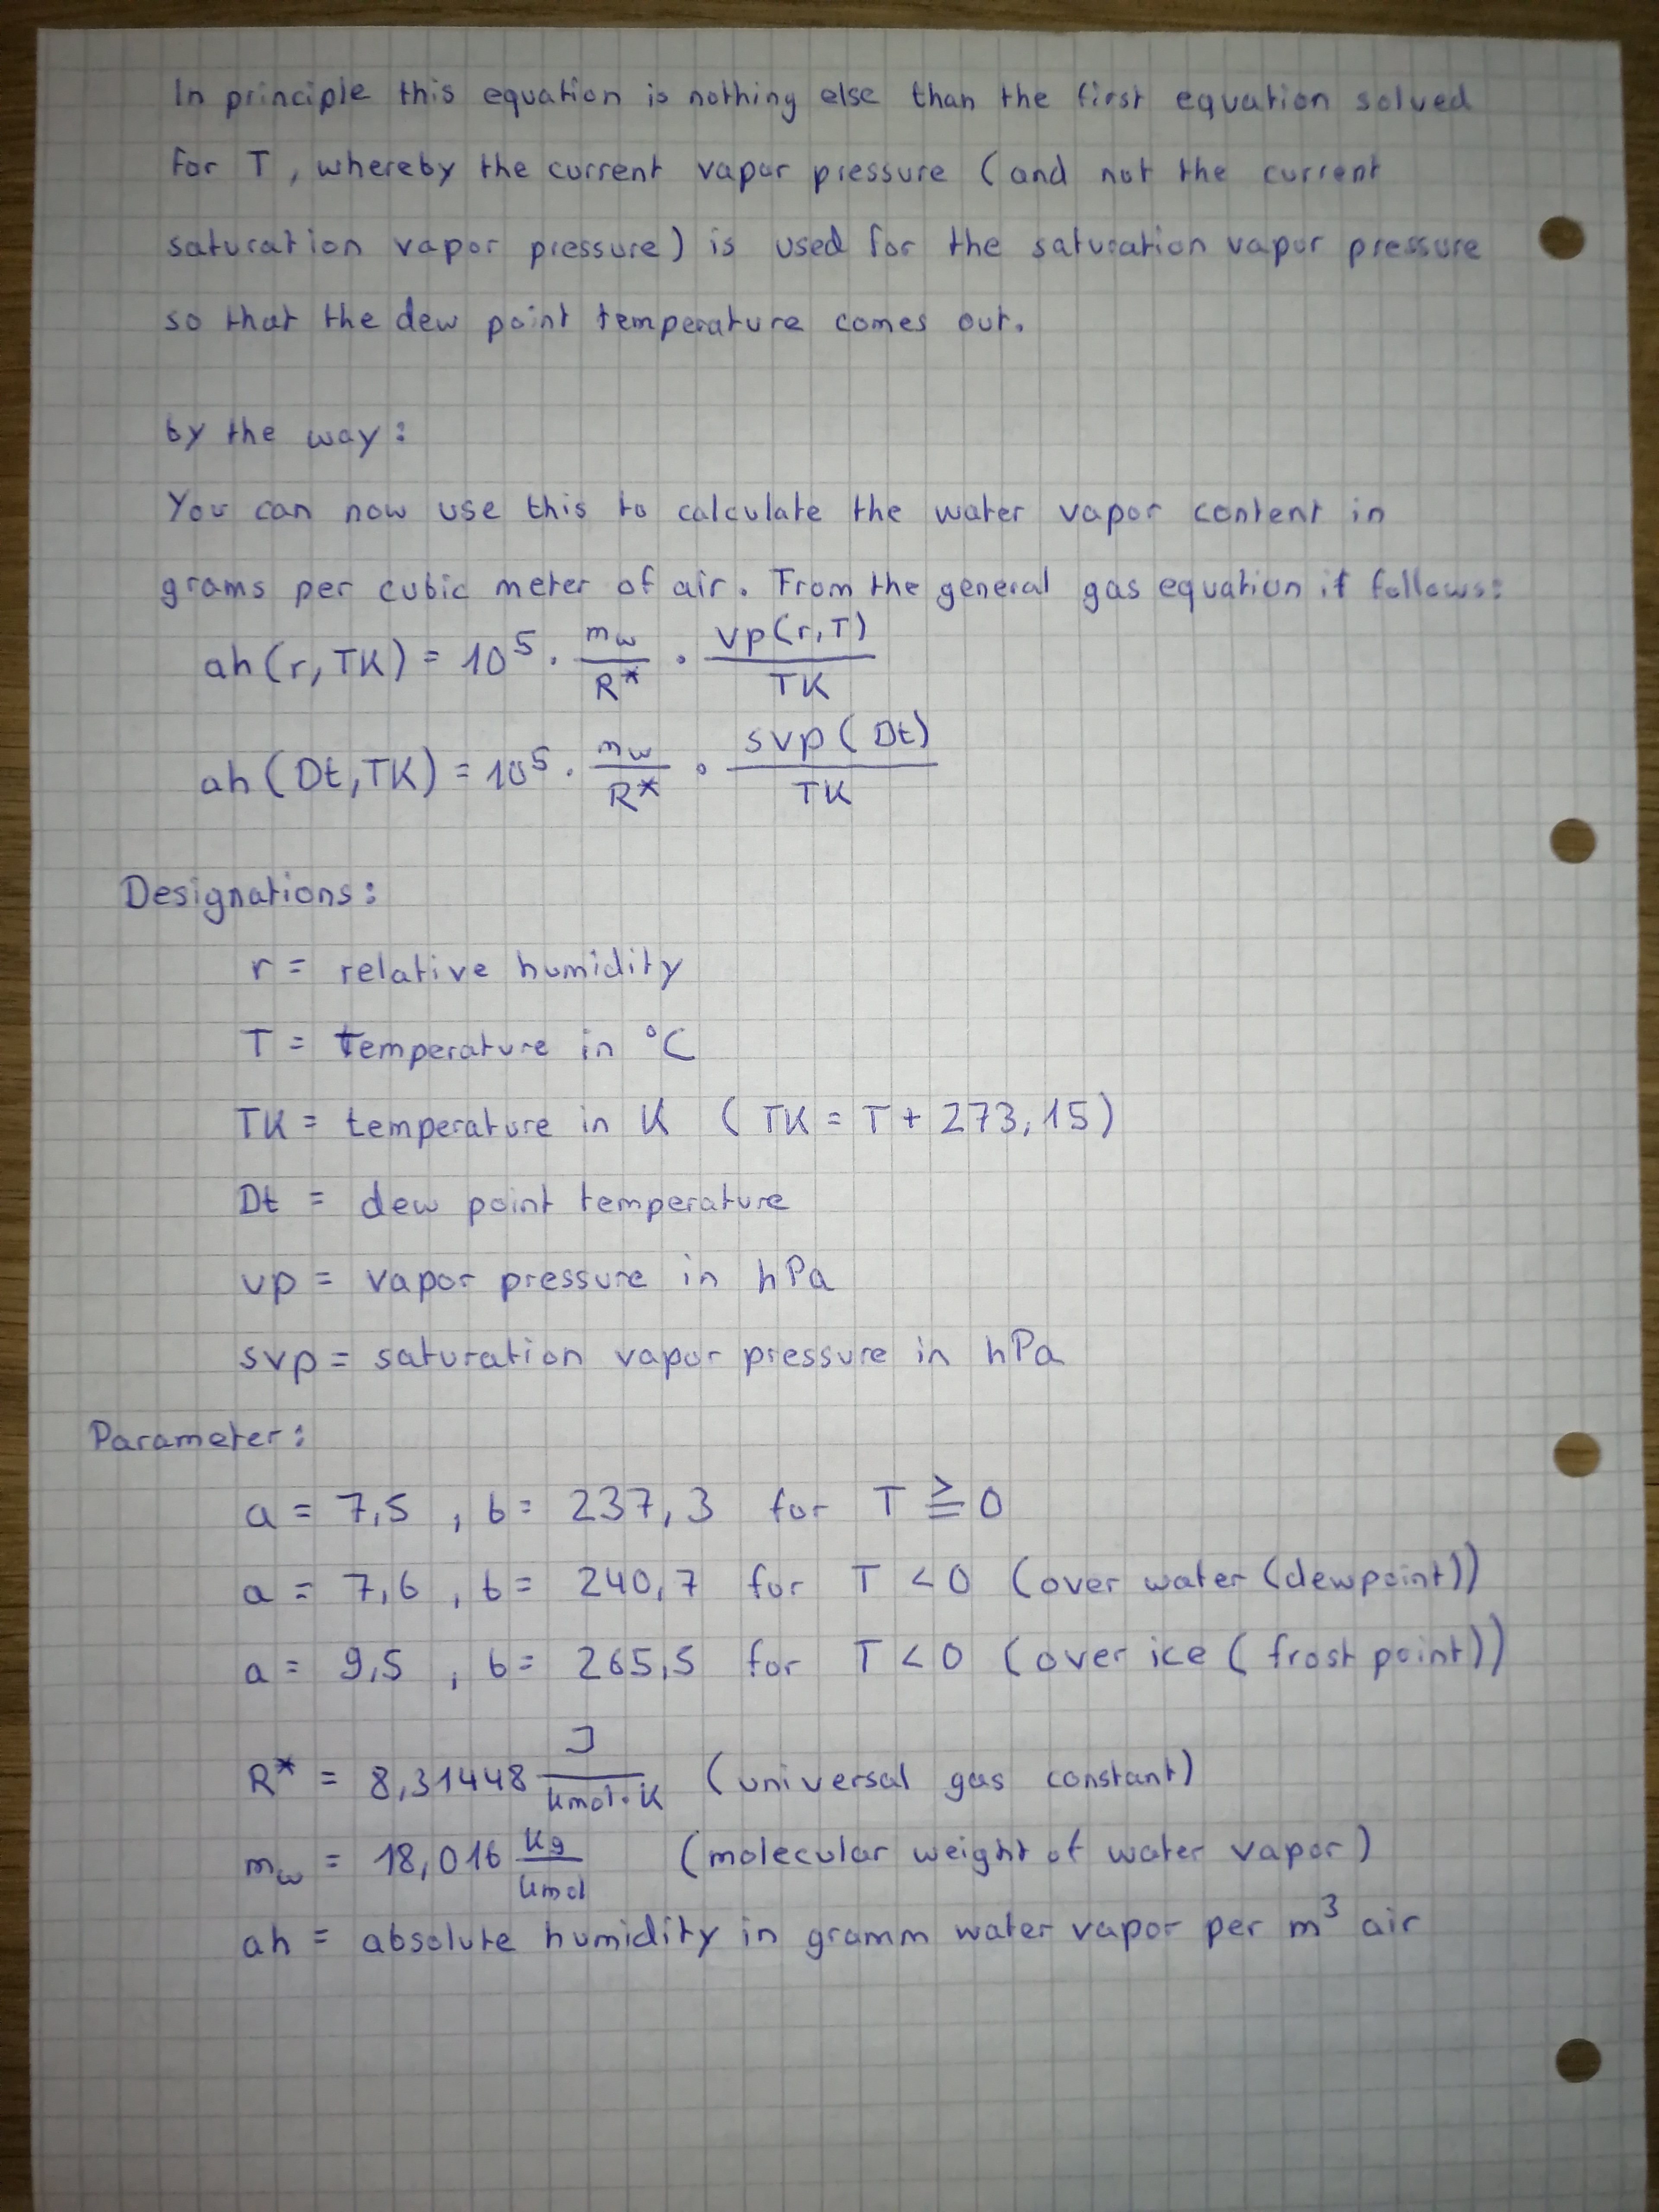 In principle this equation is nothing else than the first equation solved
for T, whereby the current vapor pressure (and not the current
saturation vapor pressure) is used for the saturation vapor pressure
so that the dew point temperature comes out.
by the way:
You can now use this to calculate the water vapor content in
grams per cubic meter of air. From the general gas equation it follows:
ah(r,TK) = 10^5 · m_w/R* · vp(r,T)/TK
ah(Dt,TK) = 10^5 · m_w/R* · svp(Dt)/TK
Designations:
r = relative humidity
T = temperature in °C
TK = temperature in K (TK = T + 273,15)
Dt = dew point temperature
vp = vapor pressure in hPa
svp = saturation vapor pressure in hPa
Parameter:
a = 7,5 , b = 237,3 for T ≧ 0
a = 7,6 , b = 240,7 for T < 0 (over water (dewpoint))
a = 9,5 , b = 265,5 for T < 0 (over ice (frost point))
R* = 8,31448 J/kmol·K (universal gas constant)
m_w = 18,016 kg/kmol (molecular weight of water vapor)
ah = absolute humidity in gramm water vapor per m³ air